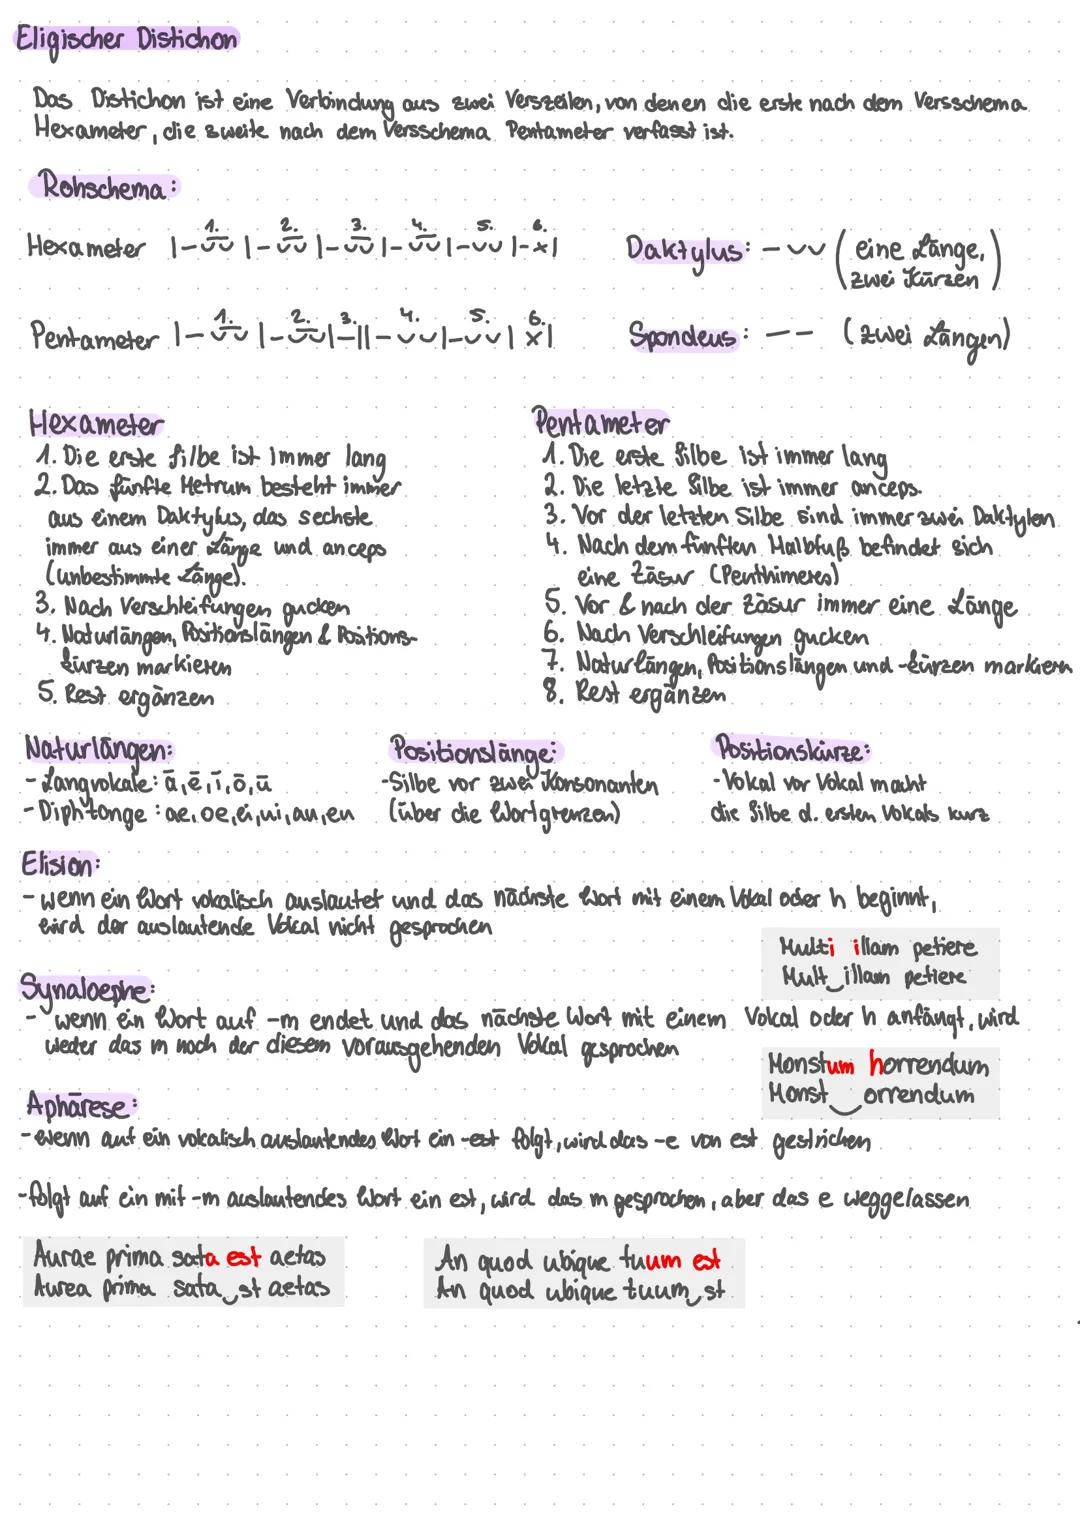 Eligischer Distichon
Das Distichon ist eine Verbindung aus zwei Verszeilen, von denen die erste nach dem Versschema
Hexameter, die zweite nach dem Versschema Pentameter verfasst ist.
Rohschema:
1. 2. 3. 4. 5. 6.
Hexameter |-⏕|-⏕|-⏕|-⏕|-⏑⏑|-x|
Daktylus: -⏑⏑ (eine Länge,
zwei Kürzen)
1. 2. 3. 4. 5. 6.
Pentameter |-⏕|-⏕|-||-⏑⏑|-⏑⏑|x|
Spondeus: -- (zwei Längen)
Hexameter
1. Die erste Silbe ist immer lang
2. Das fünfte Metrum besteht immer
aus einem Daktylus, das sechste
immer aus einer Länge und anceps
(unbestimmte Länge).
3. Nach Verschleifungen gucken
4. Naturlängen, Positionslängen & Positions-
kürzen markieren
5. Rest ergänzen
Pentameter
1. Die erste Silbe ist immer lang
2. Die letzte Silbe ist immer anceps.
3. Vor der letzten Silbe sind immer zwei Daktylen
4. Nach dem fünften Halbfuß befindet sich
eine Zäsur (Penthimeres)
5. Vor & nach der Zäsur immer eine Länge
6. Nach Verschleifungen gucken
7. Naturlängen, Positionslängen und -kürzen markiern
8. Rest ergänzen
Naturlängen:
- Langvokale: ā, ē, ī, ō, ū
- Diphtonge: ae, oe, ei, ui, au, eu
Positionslänge:
- Silbe vor zwei Konsonanten
(über die Wortgrenzen)
Positionskürze:
- Vokal vor Vokal macht
die Silbe d. ersten Vokals kurz
Elision:
- wenn ein Wort vokalisch auslautet und das nächste Wort mit einem Vokal oder h beginnt,
wird der auslautende Vokal nicht gesprochen
Multi illam petiere
Mult‿illam petiere
Synaloephe:
- wenn ein Wort auf -m endet und das nächste Wort mit einem Vokal oder h anfängt, wird
weder das m noch der diesem vorausgehenden Vokal gesprochen
Monstum horrendum
Monst‿orrendum
Aphärese:
- wenn auf ein vokalisch auslautendes Wort ein -est folgt, wird das -e von est gestrichen
- folgt auf ein mit -m auslautendes Wort ein est, wird das m gesprochen, aber das e weggelassen
Aurae prima sata est aetas
Aurea prima sata‿st aetas
An quod ubique tuum est
An quod ubique tuum‿st